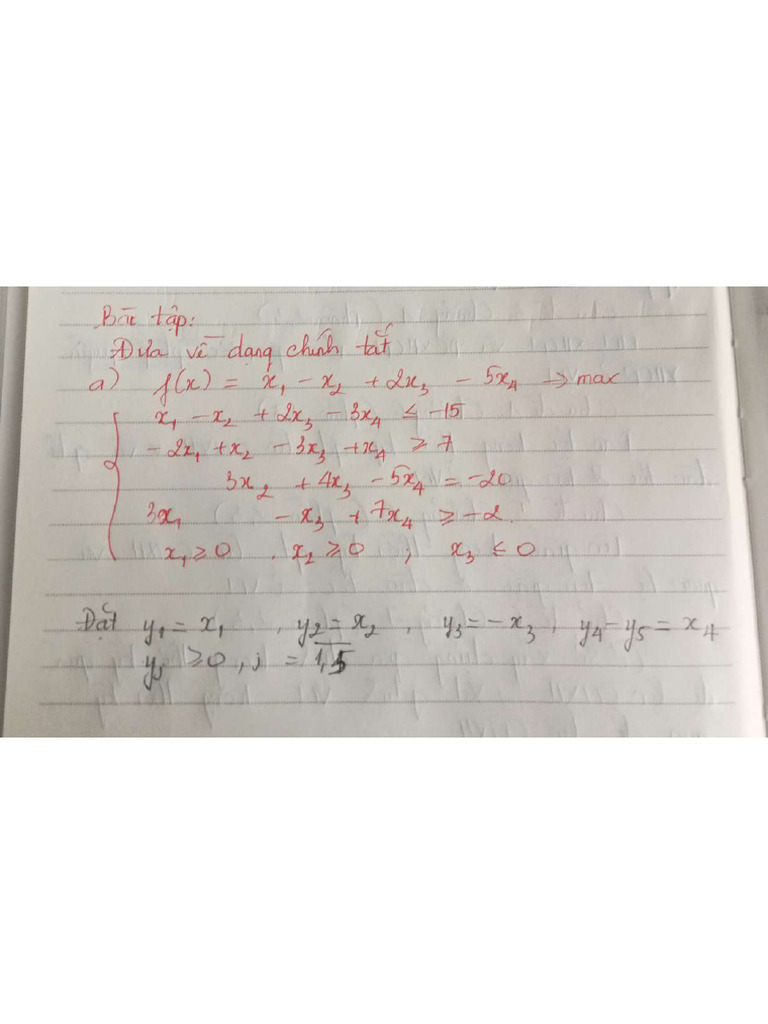 Bài tập:
Đưa về dạng chính tắc
a) f(x) = x₁ - x₂ + 2x₃ - 5x₄ → max
x₁ - x₂ + 2x₃ - 3x₄ ≤ -15
- 2x₁ + x₂ - 3x₃ + x₄ ≥ 7
3x₂ + 4x₃ - 5x₄ = -20
3x₁ - x₃ + 7x₄ ≥ -2.
x₁ ≥ 0 , x₂ ≥ 0 , x₃ ≤ 0
Đặt y₁ = x₁ , y₂ = x₂ , y₃ = - x₃ , y₄ - y₅ = x₄
yⱼ ≥ 0 , j = 1,5